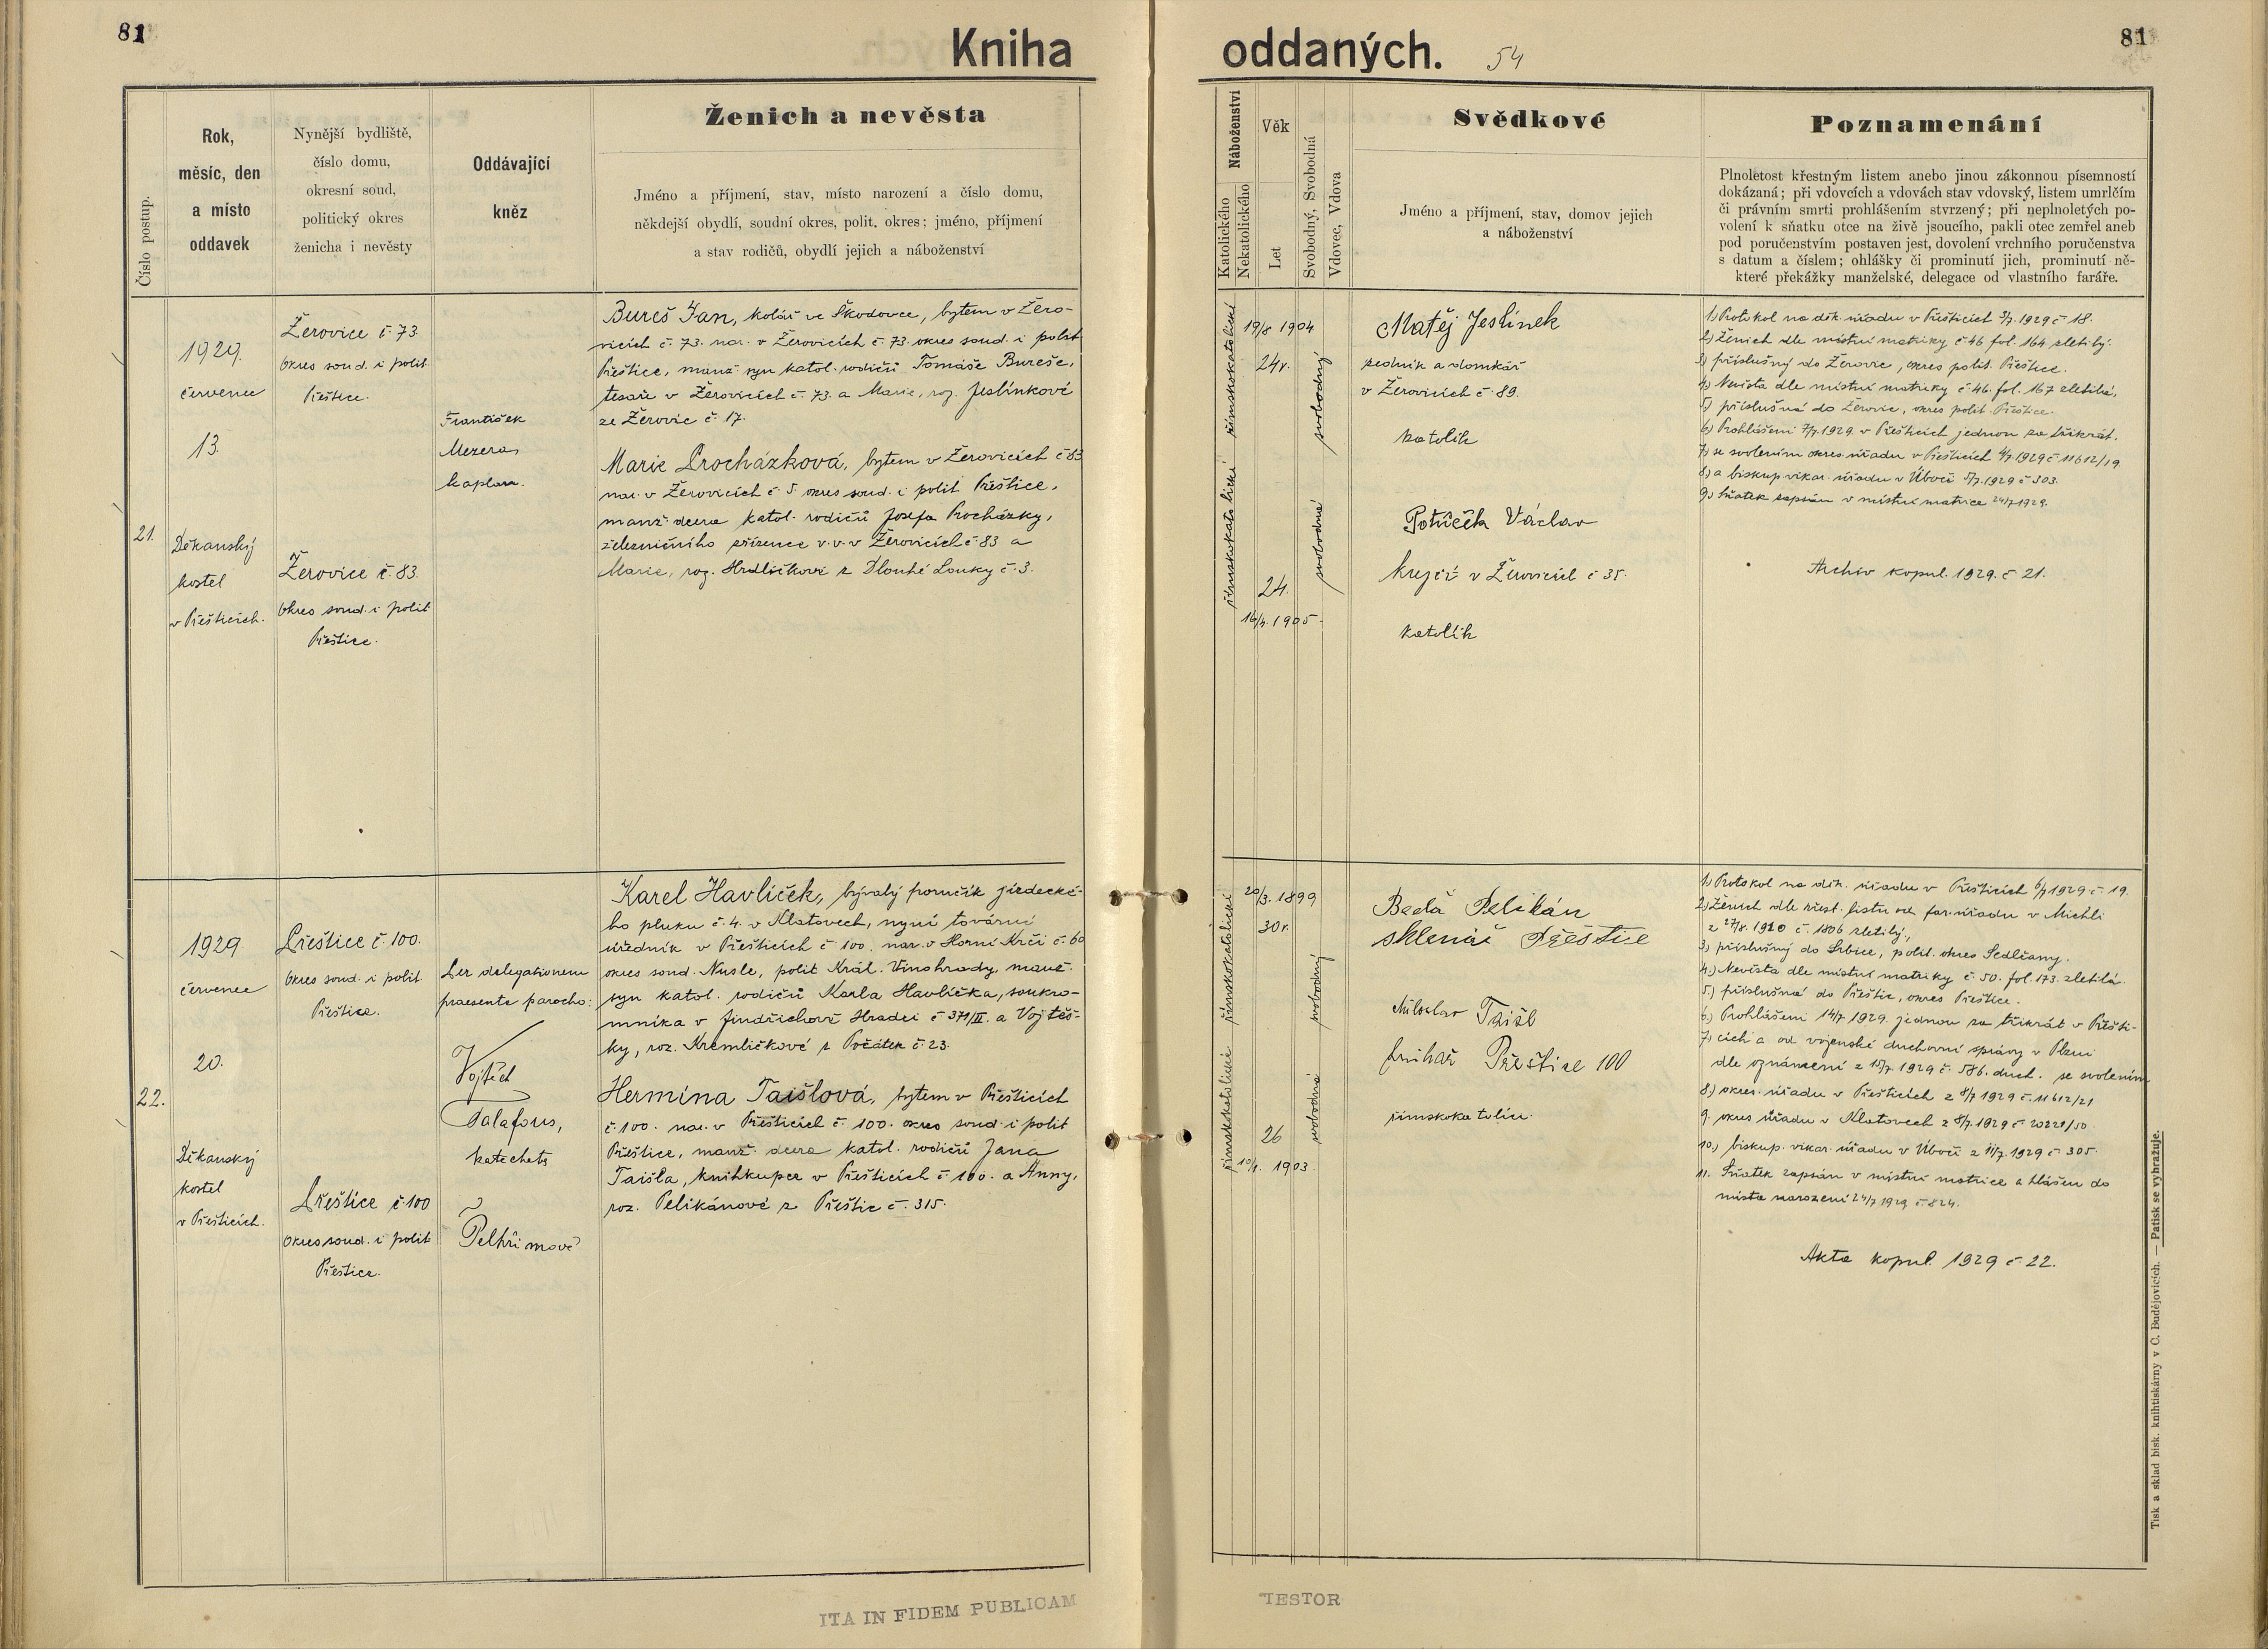 81
Kniha
oddaných.
54
81
Číslo postup.
Rok,
měsíc, den
a místo
oddavek
Nynější bydliště,
číslo domu,
okresní soud,
politický okres
ženicha i nevěsty
Oddávající
kněz
Ženich a nevěsta
Jméno a příjmení, stav, místo narození a číslo domu,
někdejší obydlí, soudní okres, polit. okres; jméno, příjmení
a stav rodičů, obydlí jejich a náboženství
Náboženství
Katolického
Nekatolického
Věk
Let
Svobodný, Svobodná
Vdovec, Vdova
Svědkové
Jméno a příjmení, stav, domov jejich
a náboženství
Poznamenání
Plnoletost křestným listem anebo jinou zákonnou písemností
dokázaná; při vdovcích a vdovách stav vdovský, listem umrlčím
či právním smrti prohlášením stvrzený; při neplnoletých po-
volení k sňatku otce na živě jsoucího, pakli otec zemřel aneb
pod poručenstvím postaven jest, dovolení vrchního poručenstva
s datum a číslem; ohlášky či prominutí jich, prominutí ně-
které překážky manželské, delegace od vlastního faráře.
21.
1929.
červenec
13.
Děkanský
kostel
v Přešticích.
Žerovice č. 73.
Okres soud. i polit
Přeštice.
Žerovice č. 83.
Okres soud. i polit
Přeštice.
František
Mezera,
kaplan.
Bureš Jan, kolář ve Škodovce, bytem v Žero-
vicích č. 73. nar. v Žerovicích č. 73. okres soud. i polit
Přeštice, manž. syn katol. rodičů Tomáše Bureše,
tesaře v Žerovicích č. 73. a Marie, roz. Jeslínkové
ze Žerovic č. 17.
Marie Procházková, bytem v Žerovicích č 83
nar. v Žerovicích č 5. okres soud. i polit Přeštice,
manž. dcera katol. rodičů Josefa Procházky,
železničního zřízence v.v. v Žerovicích č. 83 a
Marie, roz. Hrdličkové z Dlouhé Louky č. 3.
římskokatolické římskokatolické
19/8 1904
24r.
24.
16/7. 1905.
svobodný
svobodná
Matěj Jeslínek
zedník a domkář
v Žerovicích č. 89.
katolík
Potůček Václav
krejčí v Žerovicích č 35.
katolík
1) Protokol na děk. úřadu v Přešticích 3/7. 1929 č 18.
2) Ženich dle místní matriky č 46 fol. 164 zletilý.
3) příslušný do Žerovic, okres polit. Přeštice.
4) Nevěsta dle místní matriky č 46. fol. 167 zletilá,
5) příslušná do Žerovic, okres polit. Přeštice.
6) Prohlášeni 7/7. 1929. v Přešticích jednou za třikrát.
7) se svolením okres. úřadu v Přešticích 4/7. 1929 č 11612/19
8) a biskup. vikar. úřadu v Úboči 5/7. 1929 č 303.
9) Sňatek zapsán v místní matrice 24/7 1929.
Archiv kopul. 1929. č 21.
22.
1929.
červenec
20.
Děkanský
kostel
v Přešticích.
Přeštice č. 100.
Okres soud. i polit.
Přeštice.
Přeštice č. 100
Okres soud. i polit
Přeštice.
Per delegationem
praesente parocho:
Vojtěch
Talafous,
katecheta
v
Pelhřimově
Karel Havlíček, bývalý poručík jezdecké-
ho pluku č. 4. v Klatovech, nyní tovární
úředník v Přešticích č 100. nar. v Horní Krči č. 60
okres soud. Nusle, polit Král. Vinohrady, manž.
syn katol. rodičů Karla Havlíčka, soukro-
mníka v Jindřichově Hradci č 371/II. a Vojtěš-
ky, roz. Kremličkové z Počátek č. 23.
Hermína Taišlová, bytem v Přešticích
č. 100. nar. v Přešticích č. 100. okres soud. i polit
Přeštice, manž. dcera katol. rodičů Jana
Taišla, knihkupce v Přešticích č 100. a Anny,
roz. Pelikánové z Přeštic č. 315.
římskokatolické římskokatolické
20/3. 1899
30r.
26
10/1. 1903.
svobodný
svobodná
Pelikán
sklenář Přeštice
Miloslav Taišl
knihař Přeštice 100
římskokatolíci.
1) Protokol na děk. úřadu v Přešticích 6/7 1929 č. 19.
2) Ženich dle křest. listu od far. úřadu v Michli
z 27/8. 1920 č. 1806 zletilý,
3) příslušný do Srbice, polit. okres Sedlčany.
4.) Nevěsta dle místní matriky č. 50. fol. 173. zletilá.
5.) příslušná do Přeštic, okres Přeštice.
6.) Prohlášeni 14/7 1929. jednou za třikrát v Přešti-
7) cích a od vojenské duchovní správy v Plzni
dle oznámení z 15/7. 1929 č. 586. duch. se svolením
8) okres. úřadu v Přešticích z 8/7 1929 č. 11612/21
9. okres úřadu v Klatovech z 8/7. 1929 č 20221/50.
10.) biskup. vikar. úřadu v Úboči z 11/7. 1929 č 305.
11. Sňatek zapsán v místní matrice a hlášen do
místa narození 24/7 1929 č. 824.
Akta kopul. 1929 č. 22.
ITA IN FIDEM PUBLICAM
TESTOR
Tisk a sklad bisk. knihtiskárny v Č. Budějovicích. — Patisk se vyhražuje.